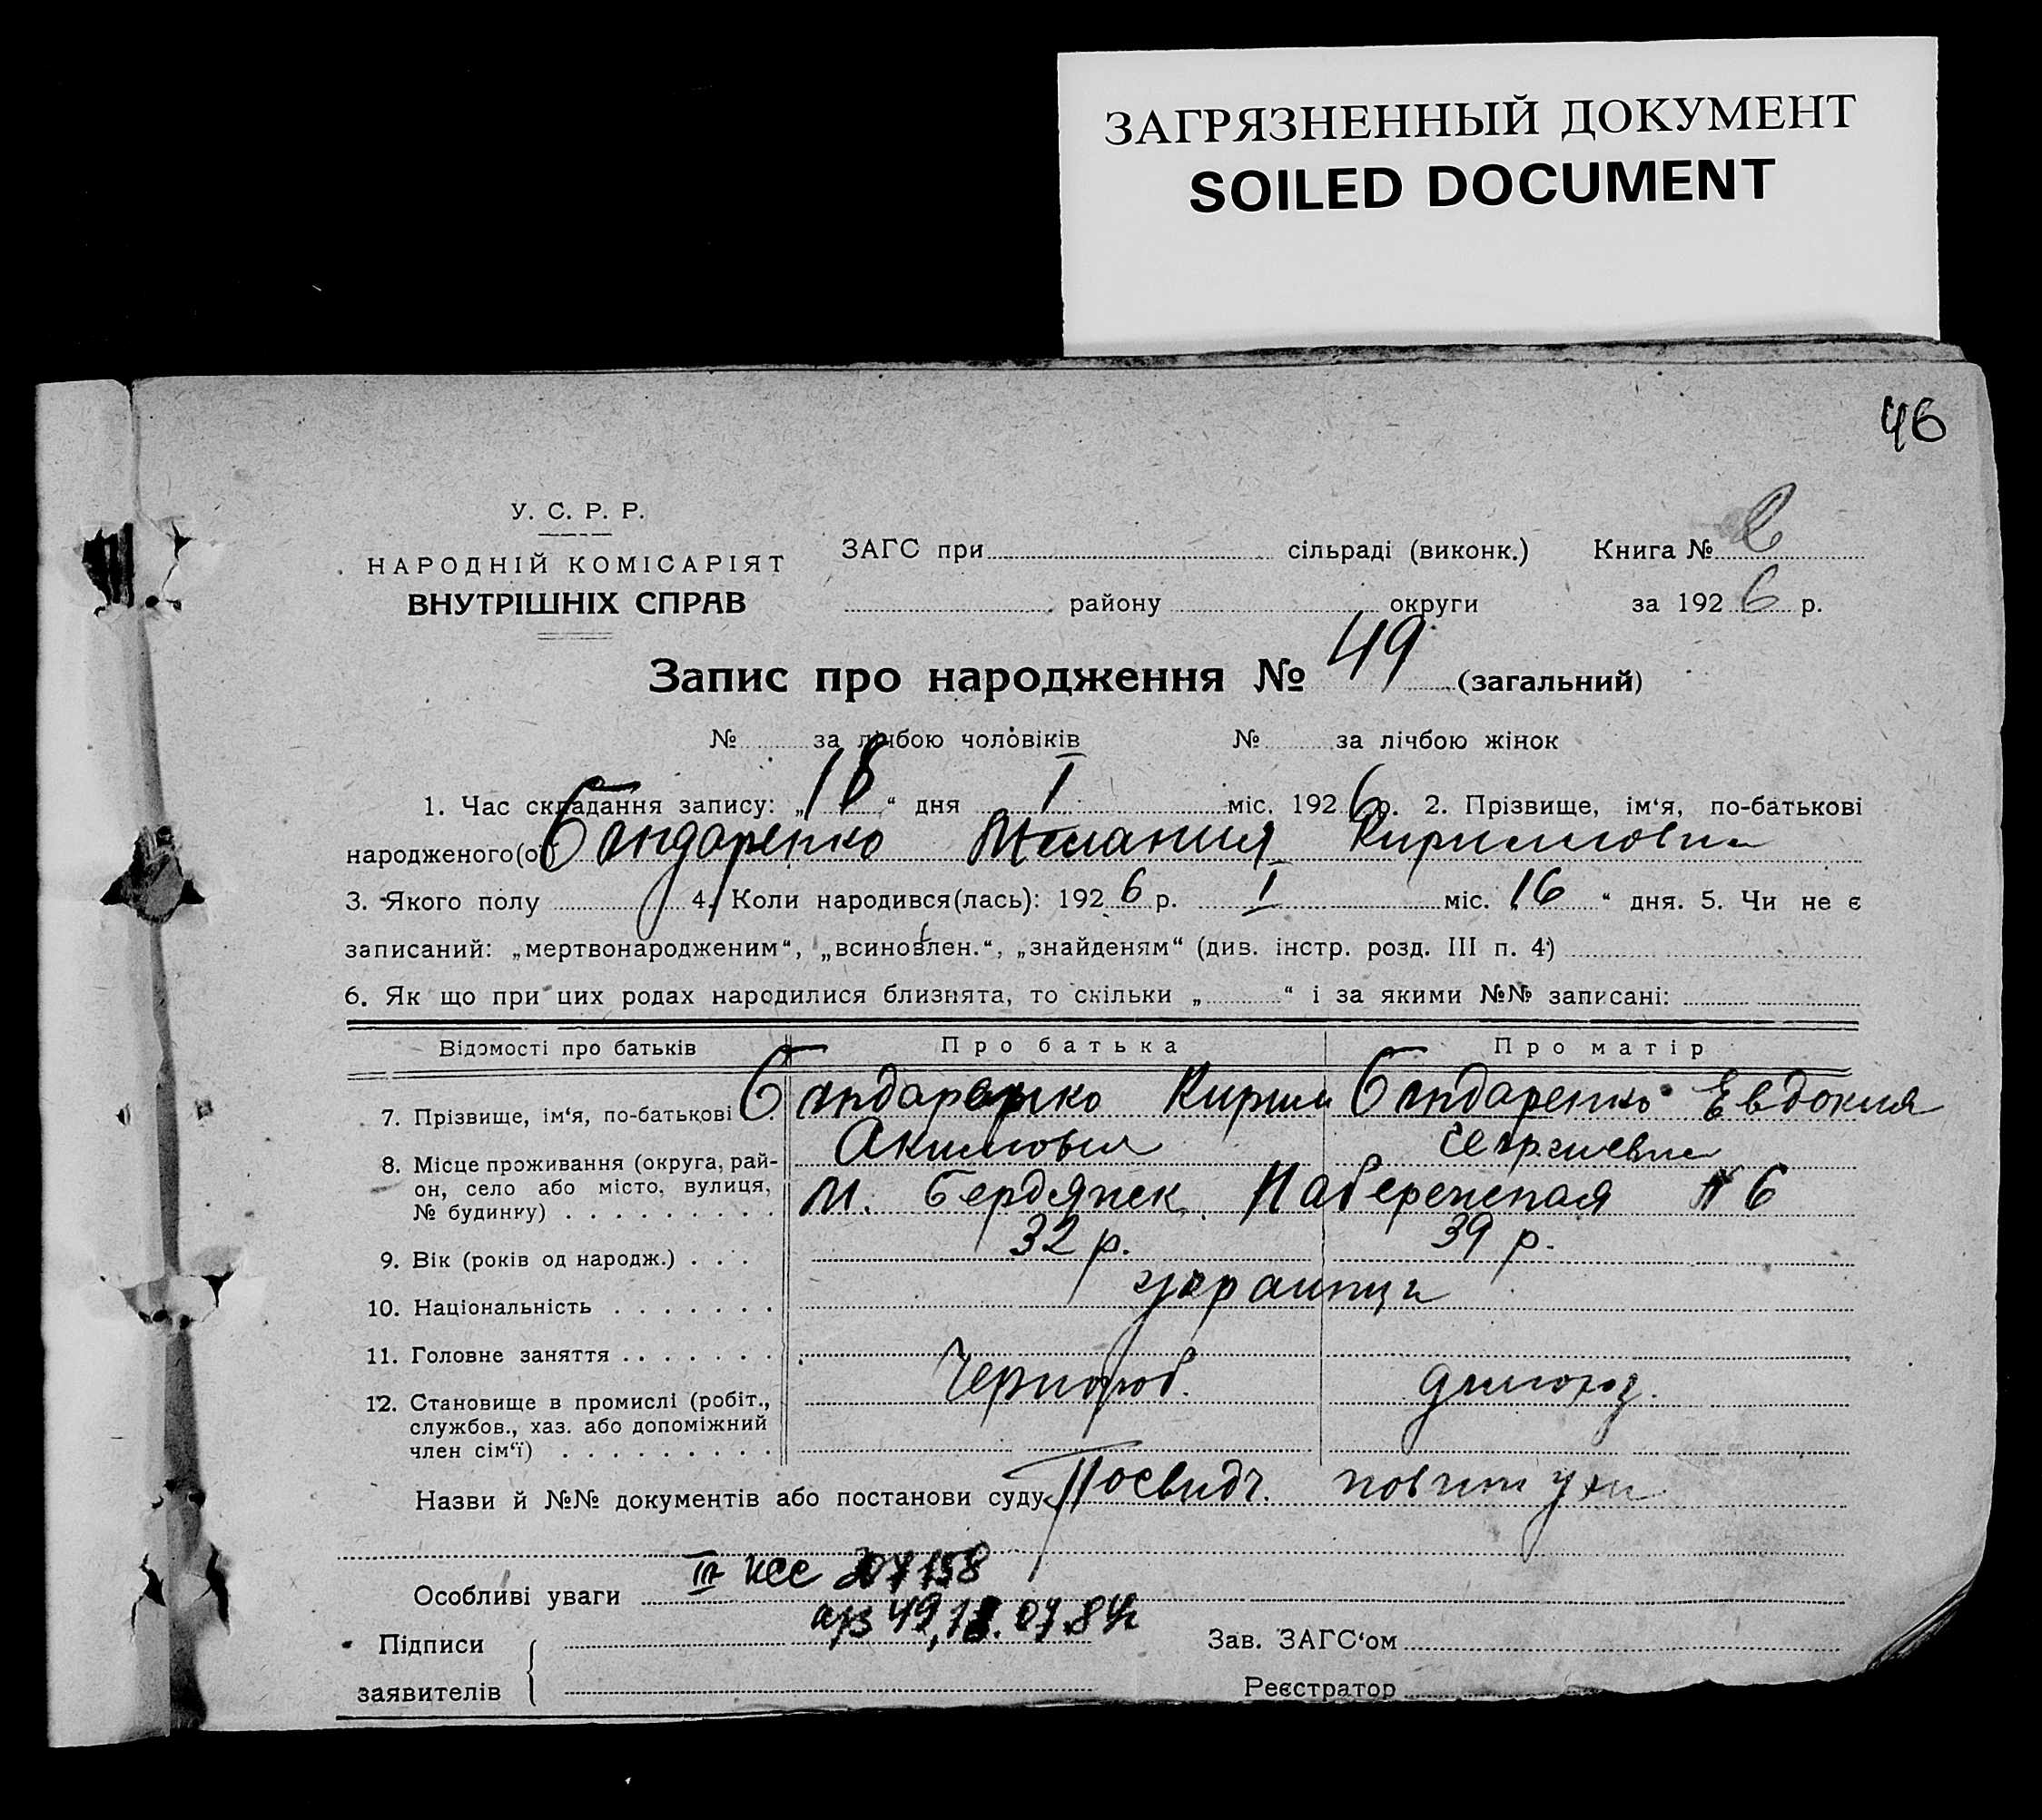 ЗАГРЯЗНЕННЫЙ ДОКУМЕНТ
SOILED DOCUMENT
46
У. С. Р. Р.
НАРОДНІЙ КОМІСАРІЯТ
ВНУТРІШНІХ СПРАВ
ЗАГС при сільраді (виконк.) Книга №
району округи за 1926 р.
Запис про народження № 49 (загальний)
№ за лічбою чоловіків № за лічбою жінок
1. Час складання запису: „18“ дня I міс. 1926 р. 2. Прізвище, ім‘я, по-батькові
народженого(ої) Бондаренко Мелания Кирилловна
3. Якого полу 4. Коли народився(лась): 1926 р. I міс. „16“ дня. 5. Чи не є
записаний: „мертвонародженим“, „всиновлен.“, „знайденям“ (див. інстр. розд. III п. 4)
6. Як що при цих родах народилися близнята, то скільки „ “ і за якими №№ записані:
Відомості про батьків Про батька Про матір
7. Прізвище, ім‘я, по-батькові Бондаренко Кирилл Бондаренко Евдокия
Акимович Георгиевна
8. Місце проживання (округа, рай-
он, село або місто, вулиця,
№ будинку) м. Бердянск. Набережная № 6
9. Вік (років од народж.) 32 р. 39 р.
10. Національність украинци
11. Головне заняття
Чернороб. домогосп.
12. Становище в промислі (робіт.,
службов., хаз. або допоміжний
член сім‘ї)
Назви й №№ документів або постанови суду Посвидч. повитухи
III КСС 207158
Особливі уваги
а/з 49, 18.07.84г
Підписи
заявителів
Зав. ЗАГС‘ом
Реєстратор